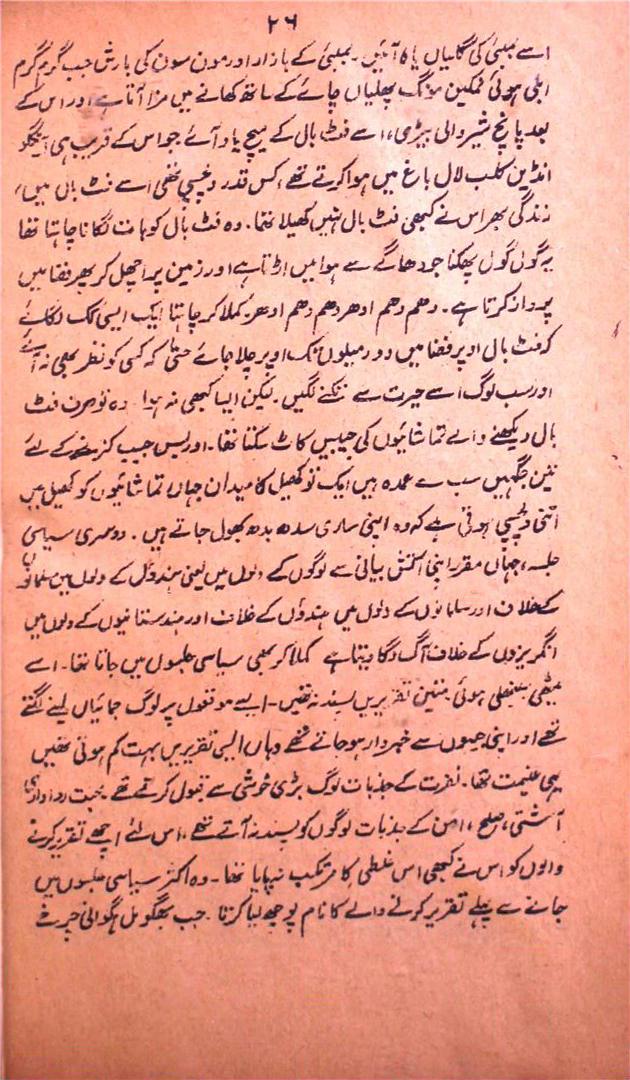 ۲۶
اسے بمبئی کی گلیاں یاد آئیں۔ بمبئی کے بازار اور مون سون کی بارش جب گرم گرم
ابلی ہوئی نمکین مونگ پھلیاں چائے کے ساتھ کھانے میں مزا آتا ہے اور اس کے
بعد پانچ شیر والی بیڑی، اسے فٹ بال کے میچ یاد آئے جو اس کے قریب ہی اینگلو
انڈین کلب لال باغ میں ہوا کرتے تھے، کس قدر دلچسپی تھی اسے فٹ بال میں،
زندگی بھر اس نے کبھی فٹ بال نہیں کھیلا تھا۔ وہ فٹ بال کو ہاتھ لگانا چاہتا تھا
یہ گول گول پھکنا جو دھاگے سے ہوا میں اڑتا ہے اور زمین پر اچھل کر پھر فضا میں
پرواز کرتا ہے۔ دھم دھم ادھر دھم دھم ادھر۔ کملا کر چاہتا ایک ایسی کک لگائے
کہ فٹ بال اوپر فضا میں دور میلوں تک اوپر چلا جائے حتیٰ کہ کسی کو نظر بھی نہ آئے
اور سب لوگ اسے حیرت سے تکنے لگیں۔ لیکن ایسا کبھی نہ ہوا۔ وہ تو صرف فٹ
بال دیکھنے والے تماشائیوں کی جیبیں کاٹ سکتا تھا۔ اور بس جیب کترنے کے لئے
تین جگہیں سب سے عمدہ ہیں ایک تو کھیل کا میدان جہاں تماشائیوں کو کھیل میں
اتنی دلچسپی ہوتی ہے کہ وہ اپنی ساری سدھ بدھ بھول جاتے ہیں۔ دوسری سیاسی
جلسہ، جہاں مقرر اپنی آتش بیانی سے لوگوں کے دلوں میں یعنی ہندوؤں کے دلوں میں مسلمانوں
کے خلاف اور مسلمانوں کے دلوں میں ہندوؤں کے خلاف اور ہندستانیوں کے دلوں میں
انگریزوں کے خلاف آگ لگا دیتا ہے کملا کر بھی سیاسی جلسوں میں جاتا تھا۔ اسے
میٹھی سنبھلی ہوئی متین تقریریں پسند نہ تھیں۔ ایسے موقعوں پر لوگ جمائیاں لینے لگتے
تھے اور اپنی جیبوں سے خبردار ہو جاتے تھے وہاں ایسی تقریریں بہت کم ہوتی تھیں
یہی غنیمت تھا۔ نفرت کے جذبات لوگ بڑی خوشی سے قبول کرتے تھے۔ محبت رواداری
آشتی، صلح، امن کے جذبات لوگوں کو پسند نہ آتے تھے، اس لئے اچھے تقریر کرنے
والوں کو اس نے کبھی اس غلطی کا مرتکب نہ پایا تھا۔ وہ اکثر سیاسی جلسوں میں
جانے سے پہلے تقریر کرنے والے کا نام پوچھ لیا کرتا۔ جب بھگومل ہگوانی